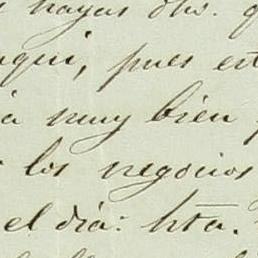 hayas dho.
aqui, pues est
á muy bien
los negocios
el dia: hta.